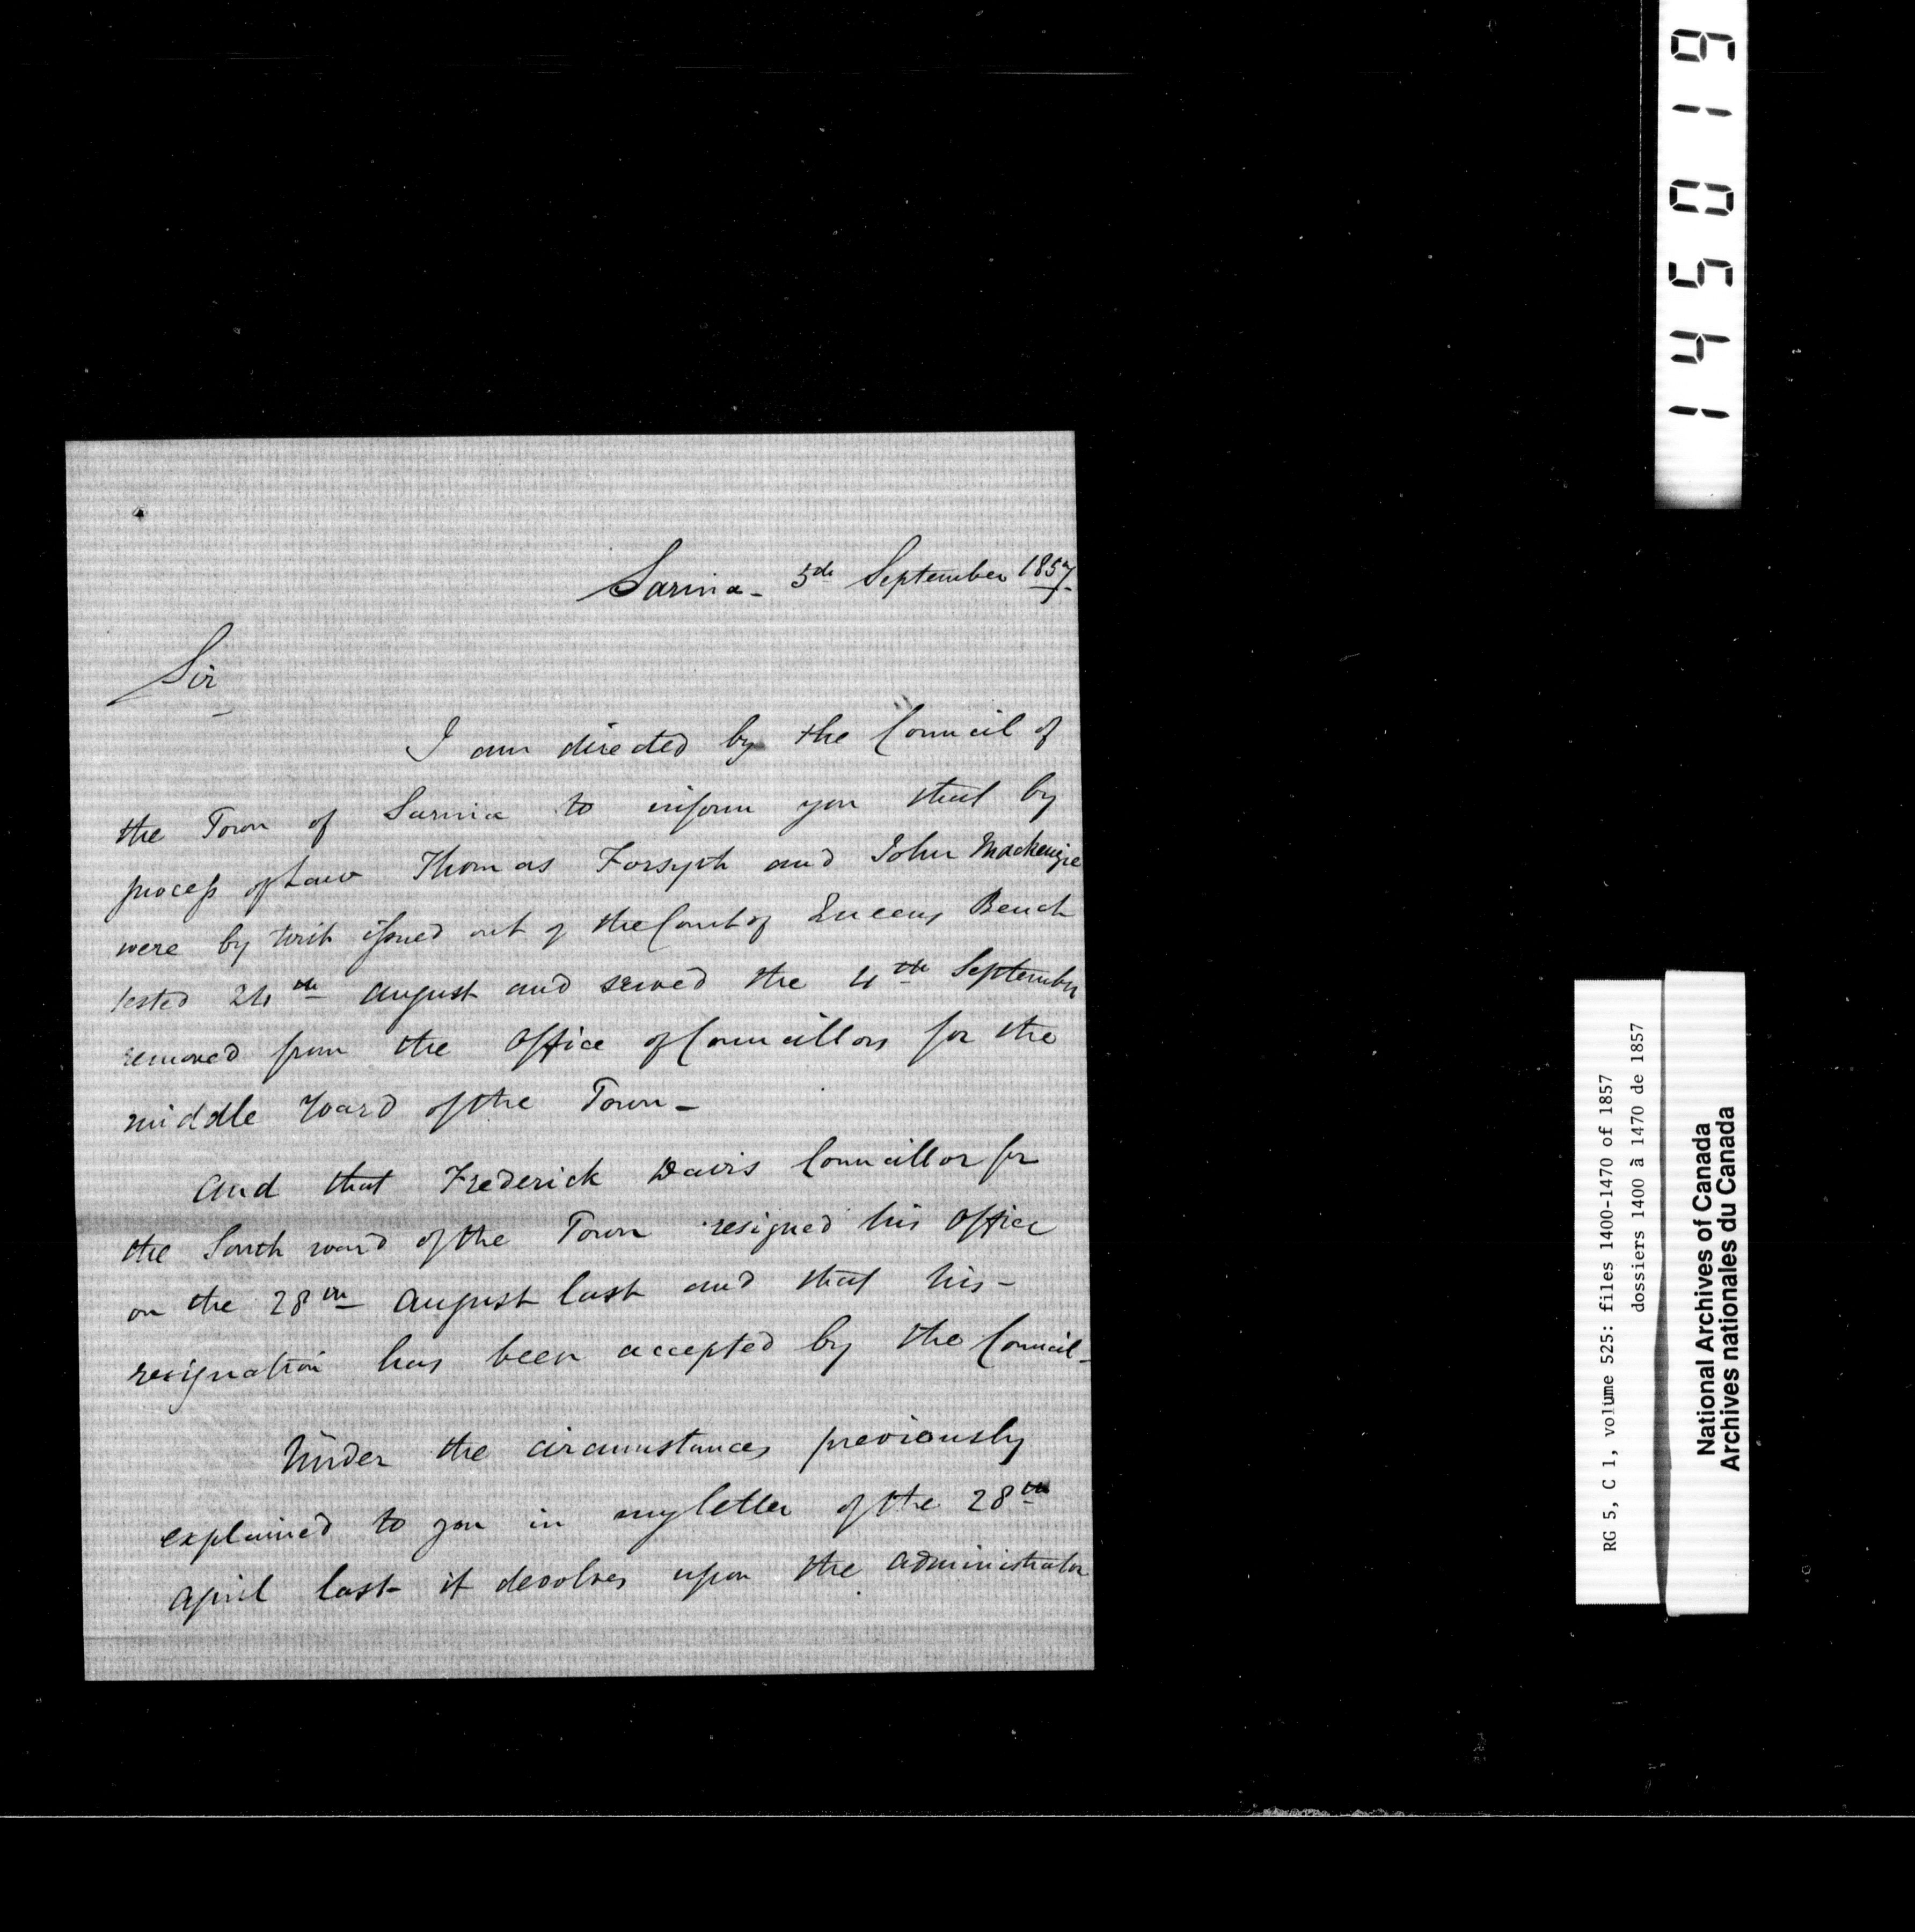 Sarnia - 5th September 1857.
Sir
I am directed by the Council of
the Town of Sarnia to inform you that by
process of Law Thomas Forsyth and John Mackenzie
were by writ issued out of the Court of Queens Bench
tested 24th August and served the 4th September
removed from the Office of Councillors for the
middle Ward of the Town -
And that Frederick Davis Councillor for
the South ward of the Town resigned his Office
on the 28th August last and that his -
resignation has been accepted by the Council -
Under the circumstances previously
explained to you in my letter of the 28th
April last it devolves upon the Administrator
145019
RG 5, C 1, volume 525: files 1400-1470 of 1857
dossiers 1400 à 1470 de 1857
National Archives of Canada
Archives nationales du Canada